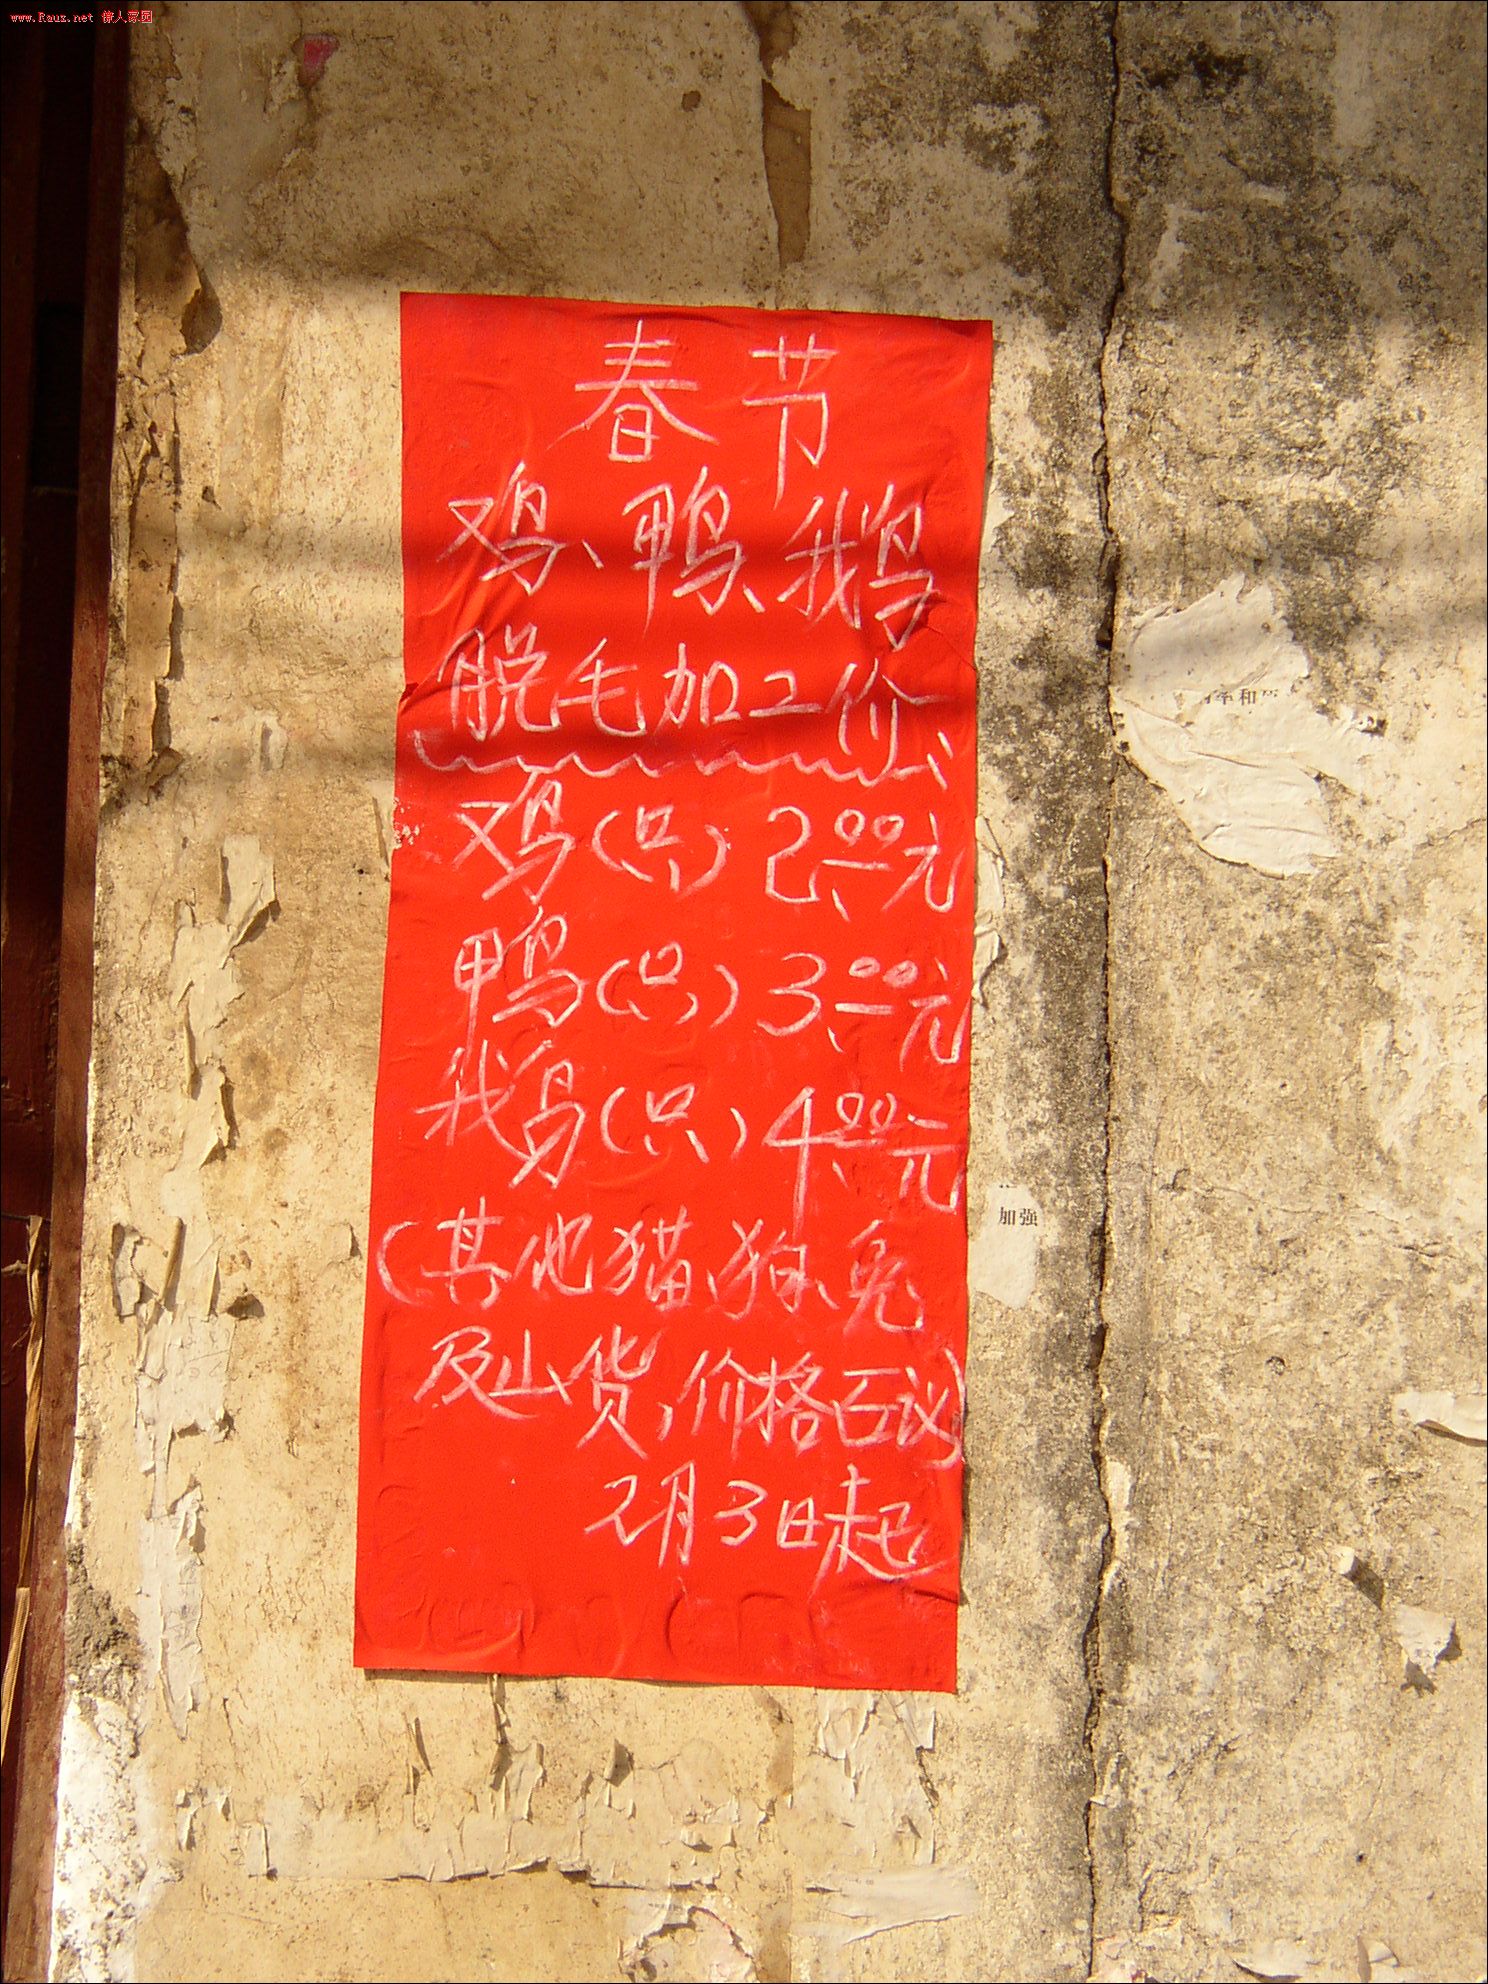 www.Rauz.net 懒人家园
春节
鸡、鸭、鹅
脱毛加工价
鸡(只) 2.00元
鸭(只) 3.00元
鹅(只) 4.00元
(其他猫、狗、兔
及山货,价格面议)
2月3日起
和
加强